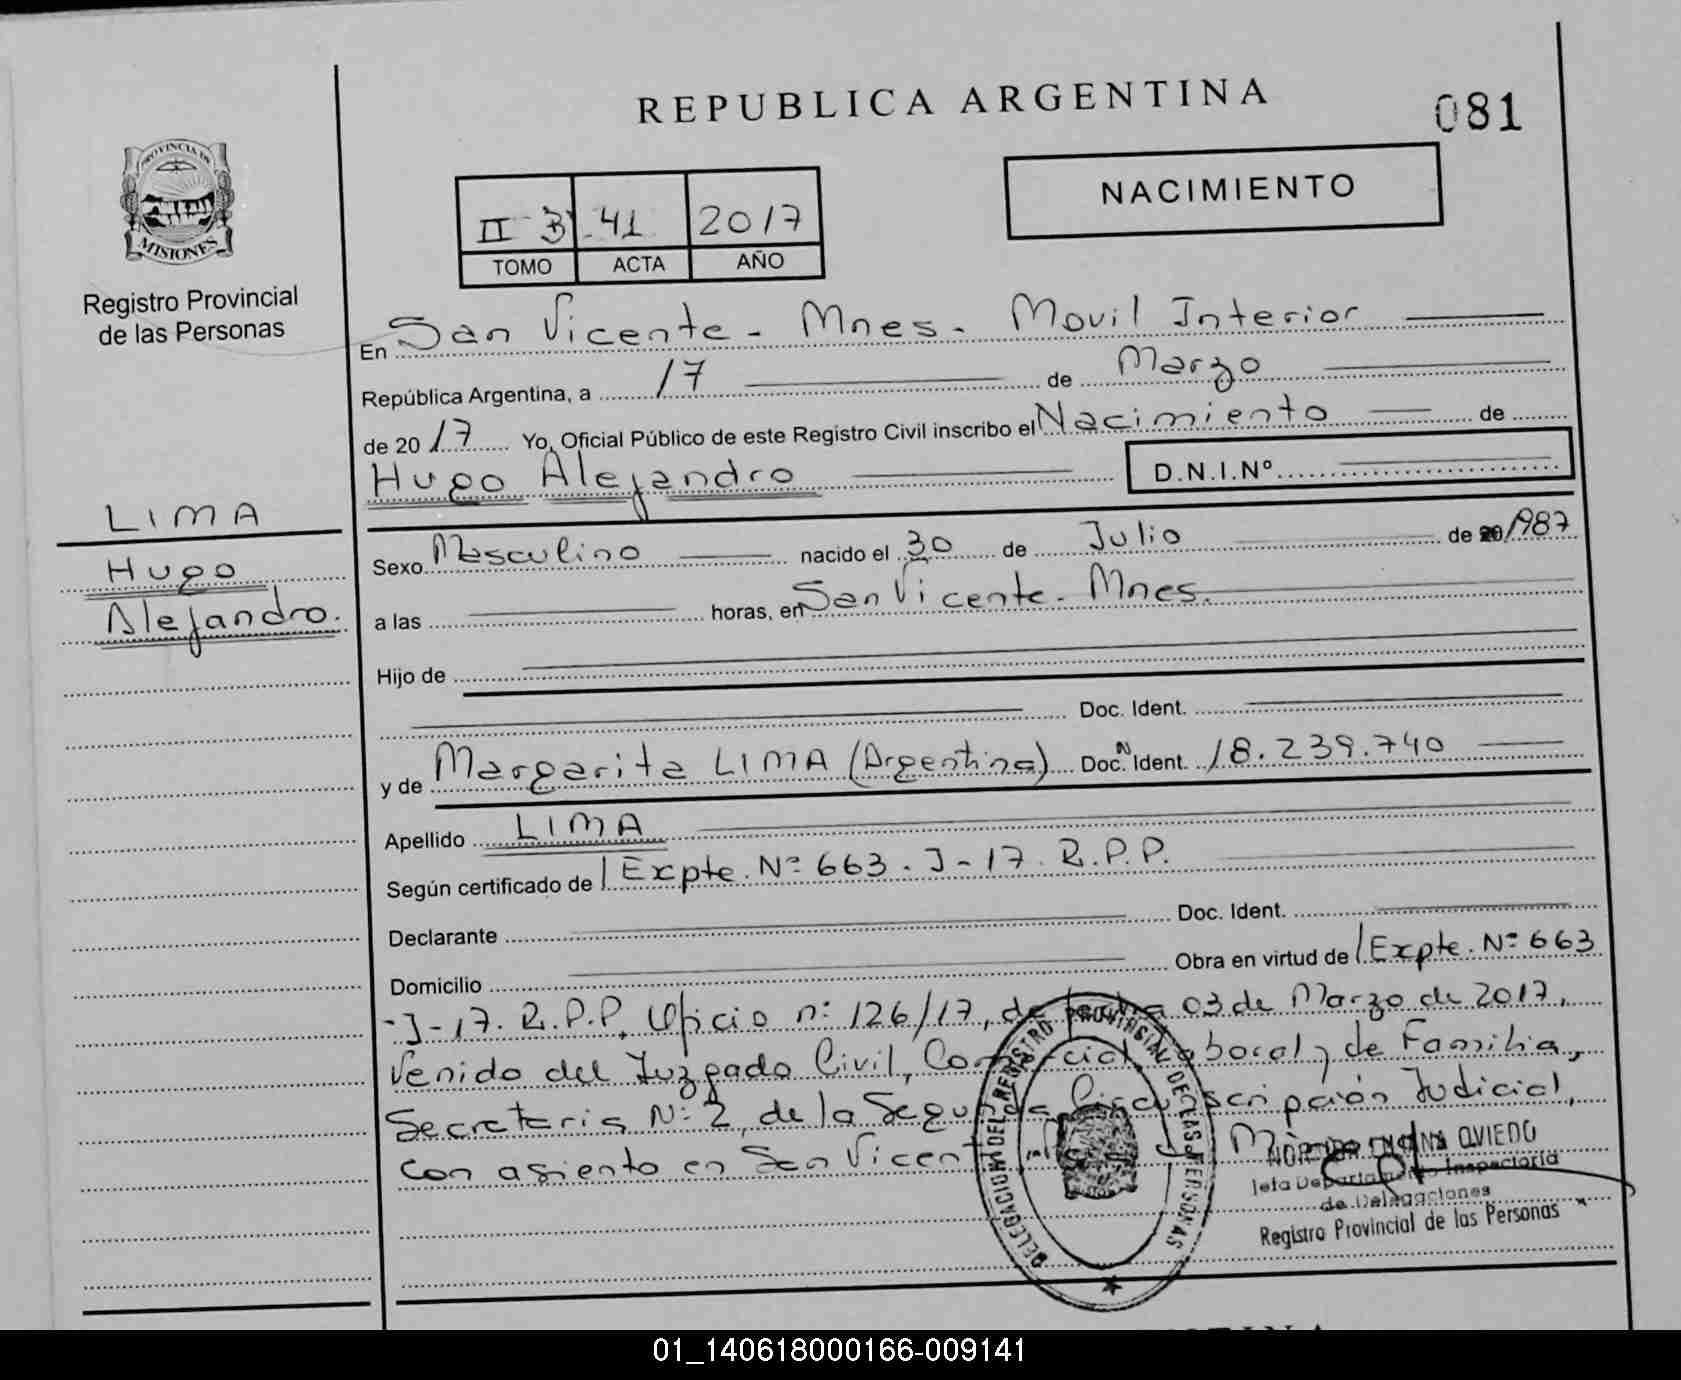 REPUBLICA ARGENTINA
081
PROVINCIA DE
MISIONES
Registro Provincial
de las Personas
II B 41 2017
TOMO ACTA AÑO
NACIMIENTO
En San Vicente - Mnes. Movil Interior
República Argentina, a 17 de Marzo
de 2017 Yo, Oficial Público de este Registro Civil inscribo el Nacimiento de
Hugo Alejandro D.N.I.Nº
LIMA
Hugo
Alejandro.
Sexo Masculino nacido el 30 de Julio de 1987
a las horas, en San Vicente. Mnes.
Hijo de
Doc. Ident.
y de Margarita LIMA (Argentina) Doc. N Ident. 18.239.740
Apellido LIMA
Según certificado de Expte. Nº 663. J-17. R.P.P.
Declarante Doc. Ident.
Domicilio Obra en virtud de Expte. Nº 663
-J-17. R.P.P. Oficio nº 126/17, de 03 de Marzo de 2017,
Venido del Juzgado Civil, Comercial Laboral y de Familia,
Secretaria Nº 2, de la Segunda Circunscripción Judicial,
con asiento en San Vicente
DELEGACION DEL REGISTRO PROVINCIAL DE LAS PERSONAS
OVIEDO
Jefa Departamento Inspectoria
de Delegaciones
Registro Provincial de las Personas
01_140618000166-009141